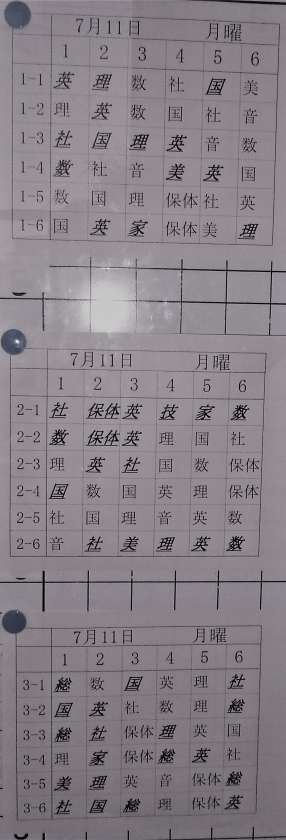 7月11日 月曜
1 2 3 4 5 6
1-1 英 理 数 社 国 美
1-2 理 英 数 国 社 音
1-3 社 国 理 英 音 数
1-4 数 社 音 美 英 国
1-5 数 国 理 保体 社 英
1-6 国 英 家 保体 美 理
7月11日 月曜
1 2 3 4 5 6
2-1 社 保体 英 技 家 数
2-2 数 保体 英 理 国 社
2-3 理 英 社 国 数 保体
2-4 国 数 国 英 理 保体
2-5 社 国 理 音 英 数
2-6 音 社 美 理 英 数
7月11日 月曜
1 2 3 4 5 6
3-1 総 数 国 英 理 社
3-2 国 英 社 数 理 総
3-3 総 社 保体 理 英 国
3-4 理 家 保体 総 英 社
3-5 美 理 英 音 保体 総
3-6 社 国 総 理 保体 英